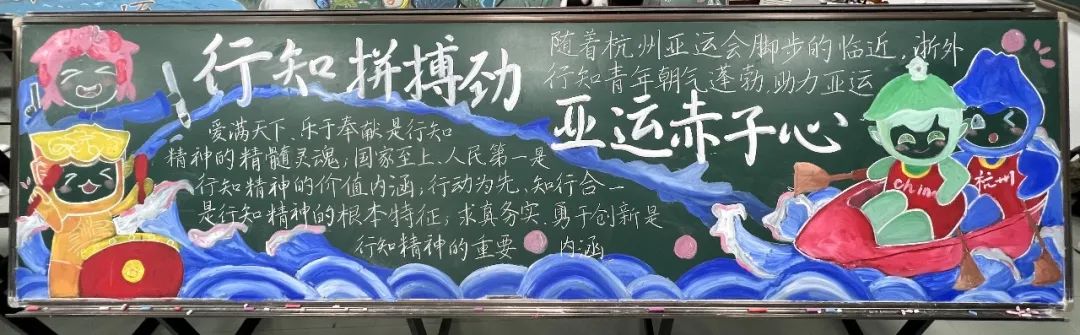 行知拼搏劲
亚运赤子心
随着杭州亚运会脚步的临近，浙外
行知青年朝气蓬勃，助力亚运
爱满天下、乐于奉献是行知
精神的精髓灵魂；国家至上、人民第一是
行知精神的价值内涵；行动为先、知行合一
是行知精神的根本特征；求真务实、勇于创新是
行知精神的重要 内涵
China
杭州